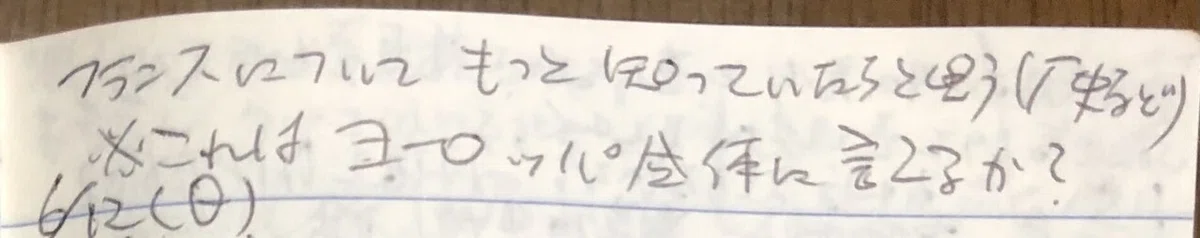 フランスについて もっと知っていたらと思う(歴史など)
※これは ヨーロッパ全体に言えるか?
6/12(日)